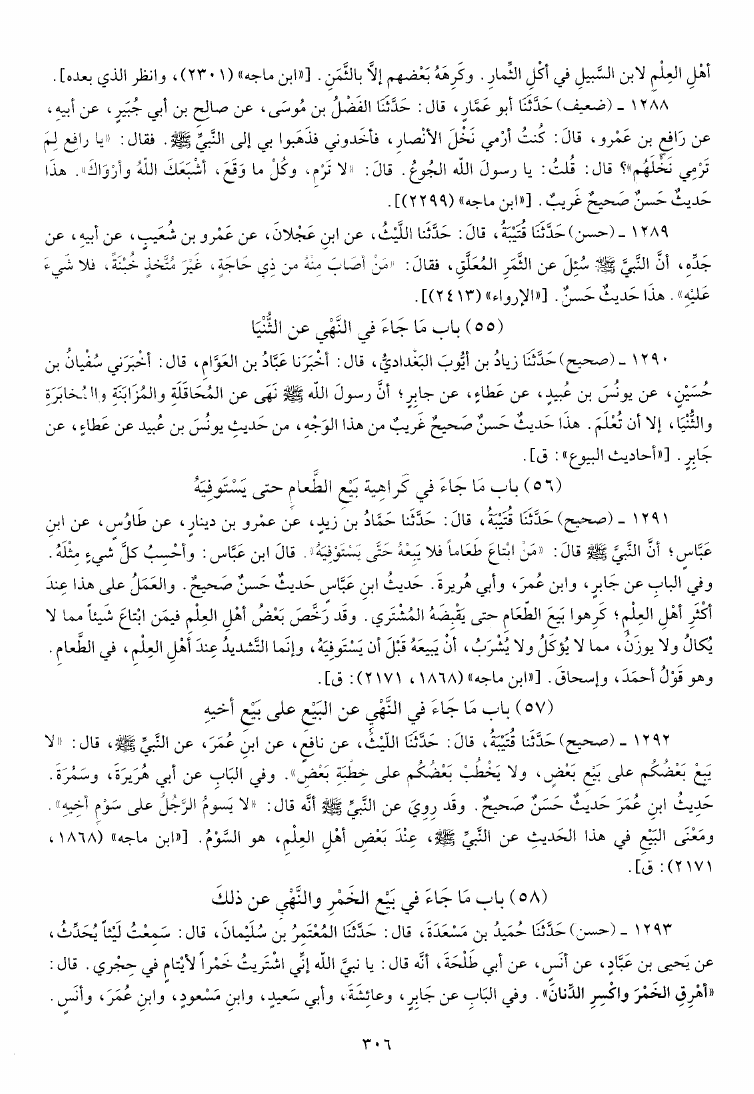 أهْلِ العِلْمِ لابن السَّبيلِ في أكْلِ الثِّمارِ. وكَرِهَهُ بَعْضهم إلاَّ بالثَّمَنِ. [«ابن ماجه» (٢٣٠١)، وانظر الذي بعده].
١٢٨٨ ـ (ضعيف) حَدَّثَنَا أبو عَمَّارٍ، قال: حَدَّثَنَا الفَضْلُ بن مُوسَى، عن صالحِ بن أبي جُبَيرٍ، عن أبيهِ،
عن رَافِعِ بن عَمْرو، قالَ: كُنتُ أرْمي نَخْلَ الأنْصارِ، فأخَدوني فذَهَبوا بي إلى النَّبيِّ ﷺ. فقال: «يا رافِع لِمَ
تَرْمِي نَخْلَهُم»؟ قال: قُلتُ: يا رسولَ الله الجُوعُ. قالَ: «لا تَرْمِ، وكُلْ ما وَقَعَ، أشْبَعَكَ اللهُ وأرْوَاكَ». هذا
حَديثٌ حَسنٌ صَحيحٌ غَريبٌ. [«ابن ماجه» (٢٢٩٩)].
١٢٨٩ ـ (حسن) حَدَّثَنَا قُتَيْبَةُ، قالَ: حَدَّثَنا اللَّيْثُ، عن ابنِ عَجْلانَ، عن عَمْرو بن شُعَيبٍ، عن أبيهِ، عن
جَدِّهِ، أنَّ النَّبيَّ ﷺ سُئِلَ عن الثَّمَرِ المُعَلَّقِ، فقالَ: «مَنْ أصَابَ مِنْهُ من ذِي حَاجَةٍ، غَيْرَ مُتَّخذٍ خُبْنَةً، فلا شَيءَ
عَلَيْهِ». هذا حَديثٌ حَسنٌ. [«الإرواء» (٢٤١٣)].
(٥٥) باب مَا جَاءَ في النَّهْيِ عن الثُّنْيَا
١٢٩٠ ـ (صحيح) حَدَّثَنَا زيادُ بن أيُّوبَ البَغْداديُّ، قال: أخْبَرَنا عَبَّادُ بن العَوَّامِ، قال: أخْبَرَني سُفْيانُ بن
حُسَيْنٍ، عن يونُسَ بن عُبيدٍ، عن عَطاءٍ، عن جابِرٍ؛ أنَّ رسولَ الله ﷺ نَهَى عن المُحَاقَلَةِ والمُزَابَنَةِ والمُخابَرَةِ
والثُّنْيَا، إلا أن تُعْلَمَ. هذا حَديثٌ حَسنٌ صَحيحٌ غَريبٌ من هذا الوَجْهِ، من حَديثِ يونُسَ بن عُبيد عن عَطاءٍ، عن
جَابِرٍ. [«أحاديث البيوع»: ق].
(٥٦) باب مَا جَاءَ في كَرَاهِية بَيْعِ الطَّعامِ حتى يَسْتَوفِيَهُ
١٢٩١ ـ (صحيح) حَدَّثَنَا قُتَيْبَةُ، قالَ: حَدَّثَنا حَمَّادُ بن زيدٍ، عن عمرِو بن دينارٍ، عن طَاوُسٍ، عن ابنِ
عَبَّاسٍ؛ أنَّ النَّبيَّ ﷺ قالَ: «مَنْ ابْتاعَ طَعَاماً فلا يَبِعْهُ حَتَّى يَسْتَوْفِيَهُ». قالَ ابن عَبَّاس: وأحْسِبُ كلَّ شيءٍ مِثْلَهُ.
وفي البابِ عن جَابرٍ، وابن عُمرَ، وأبي هُريرةَ. حَديثُ ابنِ عَبَّاسٍ حَديثٌ حَسنٌ صَحيحٌ. والعَمَلُ على هذا عِندَ
أكْثَرِ أهْلِ العِلْمِ؛ كَرِهوا بَيعَ الطَّعَامِ حتى يَقْبِضَهُ المُشْتَري. وقد رَخَّصَ بَعْضُ أهْلِ العِلْمِ فيمَن ابْتاعَ شَيئاً مما لا
يُكالُ ولا يوزَنُ، مما لا يُؤكَلُ ولا يُشْرَبُ، أنْ يَبيعَهُ قَبْلَ أن يَسْتَوفِيَهُ، وإنَّما التَّشديدُ عِندَ أهْلِ العِلْمِ، في الطَّعامِ.
وهو قَوْلُ أحمَدَ، وإسحاقَ. [«ابن ماجه» (١٨٦٨، ٢١٧١): ق].
(٥٧) باب مَا جَاءَ في النَّهْيِ عن البَيْعِ على بَيْعِ أخيهِ
١٢٩٢ ـ (صحيح) حَدَّثَنا قُتَيْبَةُ، قالَ: حَدَّثَنَا اللَّيْثُ، عن نافِعٍ، عن ابنِ عُمَرَ، عن النَّبيِّ ﷺ، قال: «لا
يَبِعْ بَعْضُكُم على بَيْعِ بَعْضٍ، ولا يَخْطُبْ بَعْضُكُم على خِطْبَةِ بَعْضٍ». وفي البَابِ عن أبي هُرَيرَةَ، وسَمُرَةَ.
حَدِيثُ ابنِ عُمَرَ حَديثٌ حَسَنٌ صَحيحٌ. وقد رويَ عن النَّبيِّ ﷺ أنَّه قال: «لا يَسومُ الرَّجُلُ على سَوْمِ أخِيهِ».
ومَعْنَى البَيْعِ في هذا الحَديثِ عن النَّبيِّ ﷺ، عِنْدَ بَعْضِ أهْلِ العِلْمِ، هو السَّوْمُ. [«ابن ماجه» (١٨٦٨،
٢١٧١): ق].
(٥٨) باب مَا جَاءَ في بَيْعِ الخَمْرِ والنَّهْيِ عن ذلكَ
١٢٩٣ ـ (حسن) حَدَّثَنَا حُمَيدُ بن مَسْعَدَةَ، قال: حَدَّثَنَا المُعْتَمِرُ بن سُلَيْمانَ، قال: سَمِعْتُ لَيْثاً يُحَدِّثُ،
عن يَحيى بن عَبَّادٍ، عن أنَسٍ، عن أبي طَلْحَةَ، أنَّه قال: يا نبيَّ الله إنِّي اشْتَريتُ خَمْراً لأيْتامٍ في حِجْري. قال:
«أهْرِقِ الخَمْرَ واكْسِرِ الدِّنانَ». وفي البَابِ عن جَابِرٍ، وعائِشَةَ، وأبي سَعيدٍ، وابنِ مَسْعودٍ، وابنِ عُمَرَ، وأنَسٍ.
٣٠٦